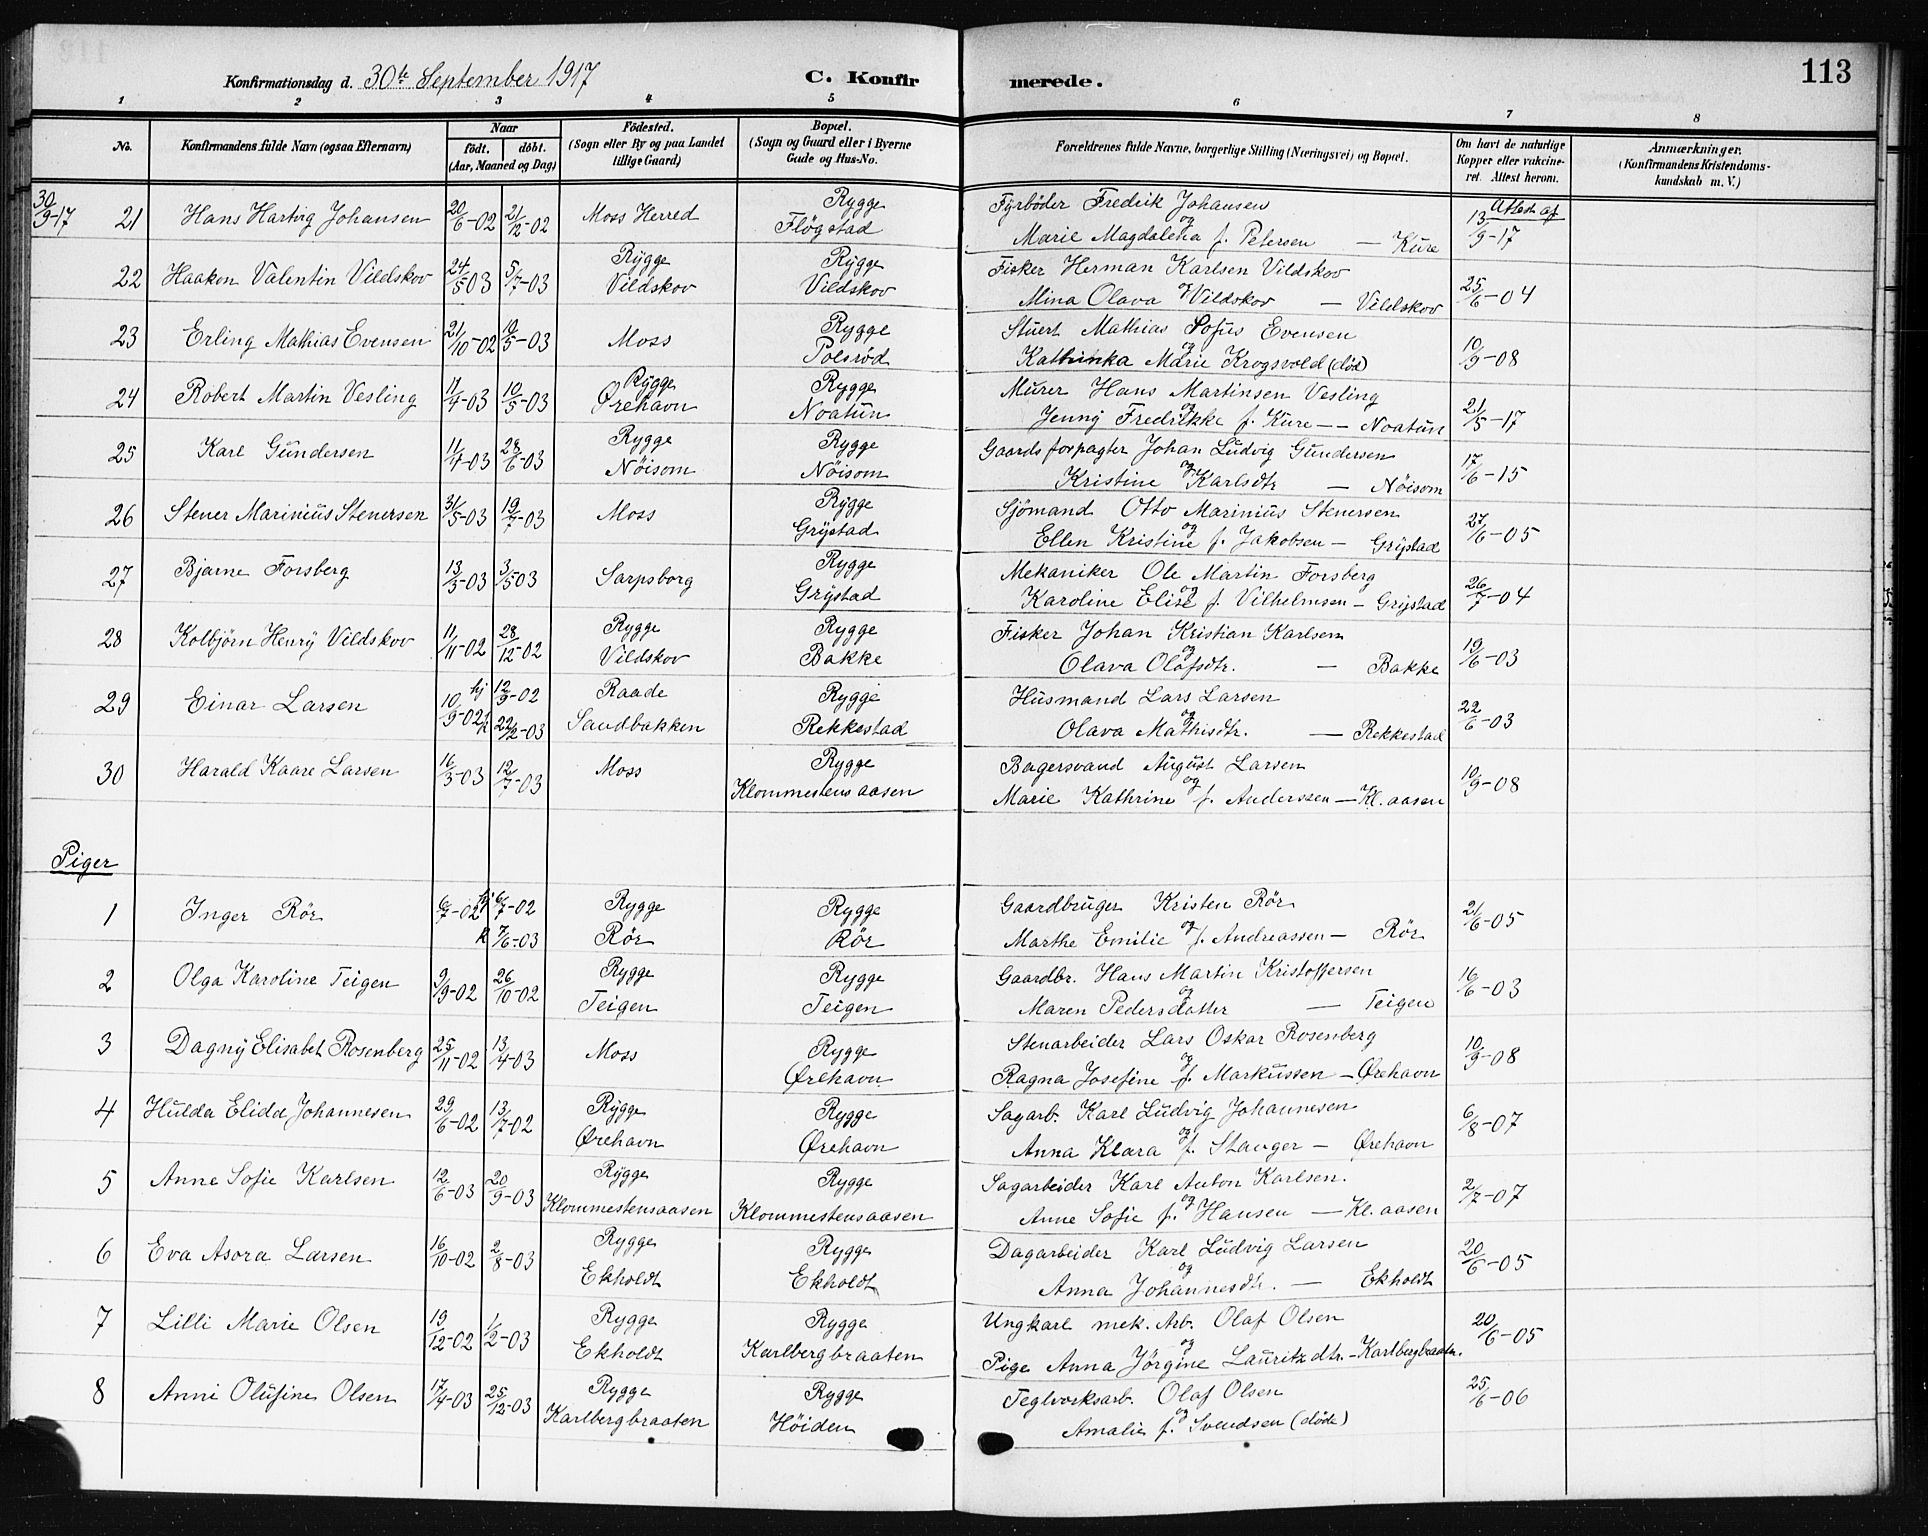 113
Konfirmationsdag d. 30te September 1917 C. Konfirmerede.
1 2 3 4 5 6 7 8
No. Konfirmandens fulde Navn (ogsaa Efternavn) Naar født. døbt. (Aar, Maaned og Dag) Fødested. (Sogn eller By og paa Landet tillige Gaard) Bopæl. (Sogn og Gaard eller i Byerne Gade og Hus-No. Forældrenes fulde Navne, borgerlige Stilling (Næringsvei) og Bopæl. Om havt de naturlige Kopper eller vakcineret. Attest herom. Anmærkninger. (Konfirmandens Kristendomskundskab m. V.)
30/9-17 21 Hans Hartvig Johansen 20/6-02 21/12-02 Moss Herred Rygge Fløgstad Fyrbøder Fredrik Johansen og Attest af
Marie Magdalena f. Petersen — Kure 13/9-17
22 Haakon Valentin Vildskov 24/5 03 5/7-03 Rygge Vildskov Rygge Vildskov Fisker Herman Karlsen Vildskov
Mina Olava og Vildskov — Vildskov 25/6-04
23 Erling Mathias Evensen 21/10-02 10/5-03 Moss Rygge Poesrød Stuert Mathias Sofus Evensen og
Kathinka Marie Krogsvold (død) 10/9-08
24 Robert Martin Vesling 11/4-03 10/5-03 Rygge Ørehavn Rygge Noatun Murer Hans Martinsen Vesling og
Jenny Fredrikke f. Kure — — Noatun 21/5-17
25 Karl Gundersen 11/4-03 28/6-03 Rygge Nöisom Rygge Nöisom Gaardsforpagter Johan Ludvig Gundersen
Kristine og Karlsdtr — Nöisom 17/6-15
26 Stener Marinius Stenersen 31/5-03 19/7-03 Moss Rygge Grystad Sjömand Otto Marinius Stenersen og
Ellen Kristine f. Jakobsen — Grystad 27/6-05
27 Bjarne Forsberg 13/3-03 3/5 03 Sarpsborg Rygge Grystad Mekaniker Ole Martin Forsberg og
Karoline Elise f. Vilhelmsen — Grystad 26/7-04
28 Kolbjörn Henry Vildskov 11/11-02 28/12-02 Rygge Vildskov Rygge Bakke Fisker Johan Kristian Karlsen og
Olava Olafsdtr. — Bakke 19/6-03
29 Einar Larsen 10/9-02 hj 12/9-02 k 22/2-03 Raade Sandbakken Rygge Rekkestad Husmand Lars Larsen og
Olava Mathisdtr. — Rekkestad 22/6-03
30 Harald Kaare Larsen 16/3-03 12/7-03 Moss Rygge Klommestensaasen Bagersvend August Larsen og
Marie Kathrine f. Anderssen — Kl. aasen 10/9-08
Piger
1 Inger Rör 6/7-02 hj 6/7-02 k 7/6-03 Rygge Rör Rygge Rör Gaardbruger Kristen Rör og
Marthe Emilie f. Andreassen — Rör 21/6-05
2 Olga Karoline Teigen 9/9-02 26/10-02 Rygge Teigen Rygge Teigen Gaardbr. Hans Martin Kristoffersen og
Maren Pedersdatter — Teigen 16/6-03
3 Dagny Elisabet Rosenberg 25/11-02 13/4-03 Moss Rygge Ørehavn Stenarbeider Lars Oskar Rosenberg og
Ragna Josefine f. Markussen — Ørehavn 10/9-08
4 Hulda Elida Johannesen 29/6-02 13/7-02 Rygge Ørehavn Rygge Ørehavn Sagarb. Karl Ludvig Johannesen og
Anna Klara f. Stanger — Ørehavn 6/8-07
5 Anne Sofie Karlsen 12/6-03 20/9-03 Rygge Klommestensaasen Rygge Klommestensaasen Sagarbeider Karl Anton Karlsen. og
Anne Sofie f. Hansen — Kl. aasen 2/7-07
6 Eva Asora Larsen 16/10-02 2/8-03 Rygge Ekholdt Rygge Ekholdt Dagarbeider Karl Ludvig Larsen og
Anna Johannesdtr. — Ekholdt 20/6-05
7 Lilli Marie Olsen 19/12-02 1/2-03 Rygge Ekholdt Rygge Karlbergbraaten Ungkarl mek. Arb. Olaf Olsen og
Pige Anna Jörgine Lauritzdtr. — Karlbergbraaten. 20/6-05
8 Anni Olufine Olsen 17/4-03 25/12-03 Rygge Karlbergbraaten Rygge Höiden Teglverksarb. Olaf Olsen og
Amalie f. Svendsen (døde) 25/6-06